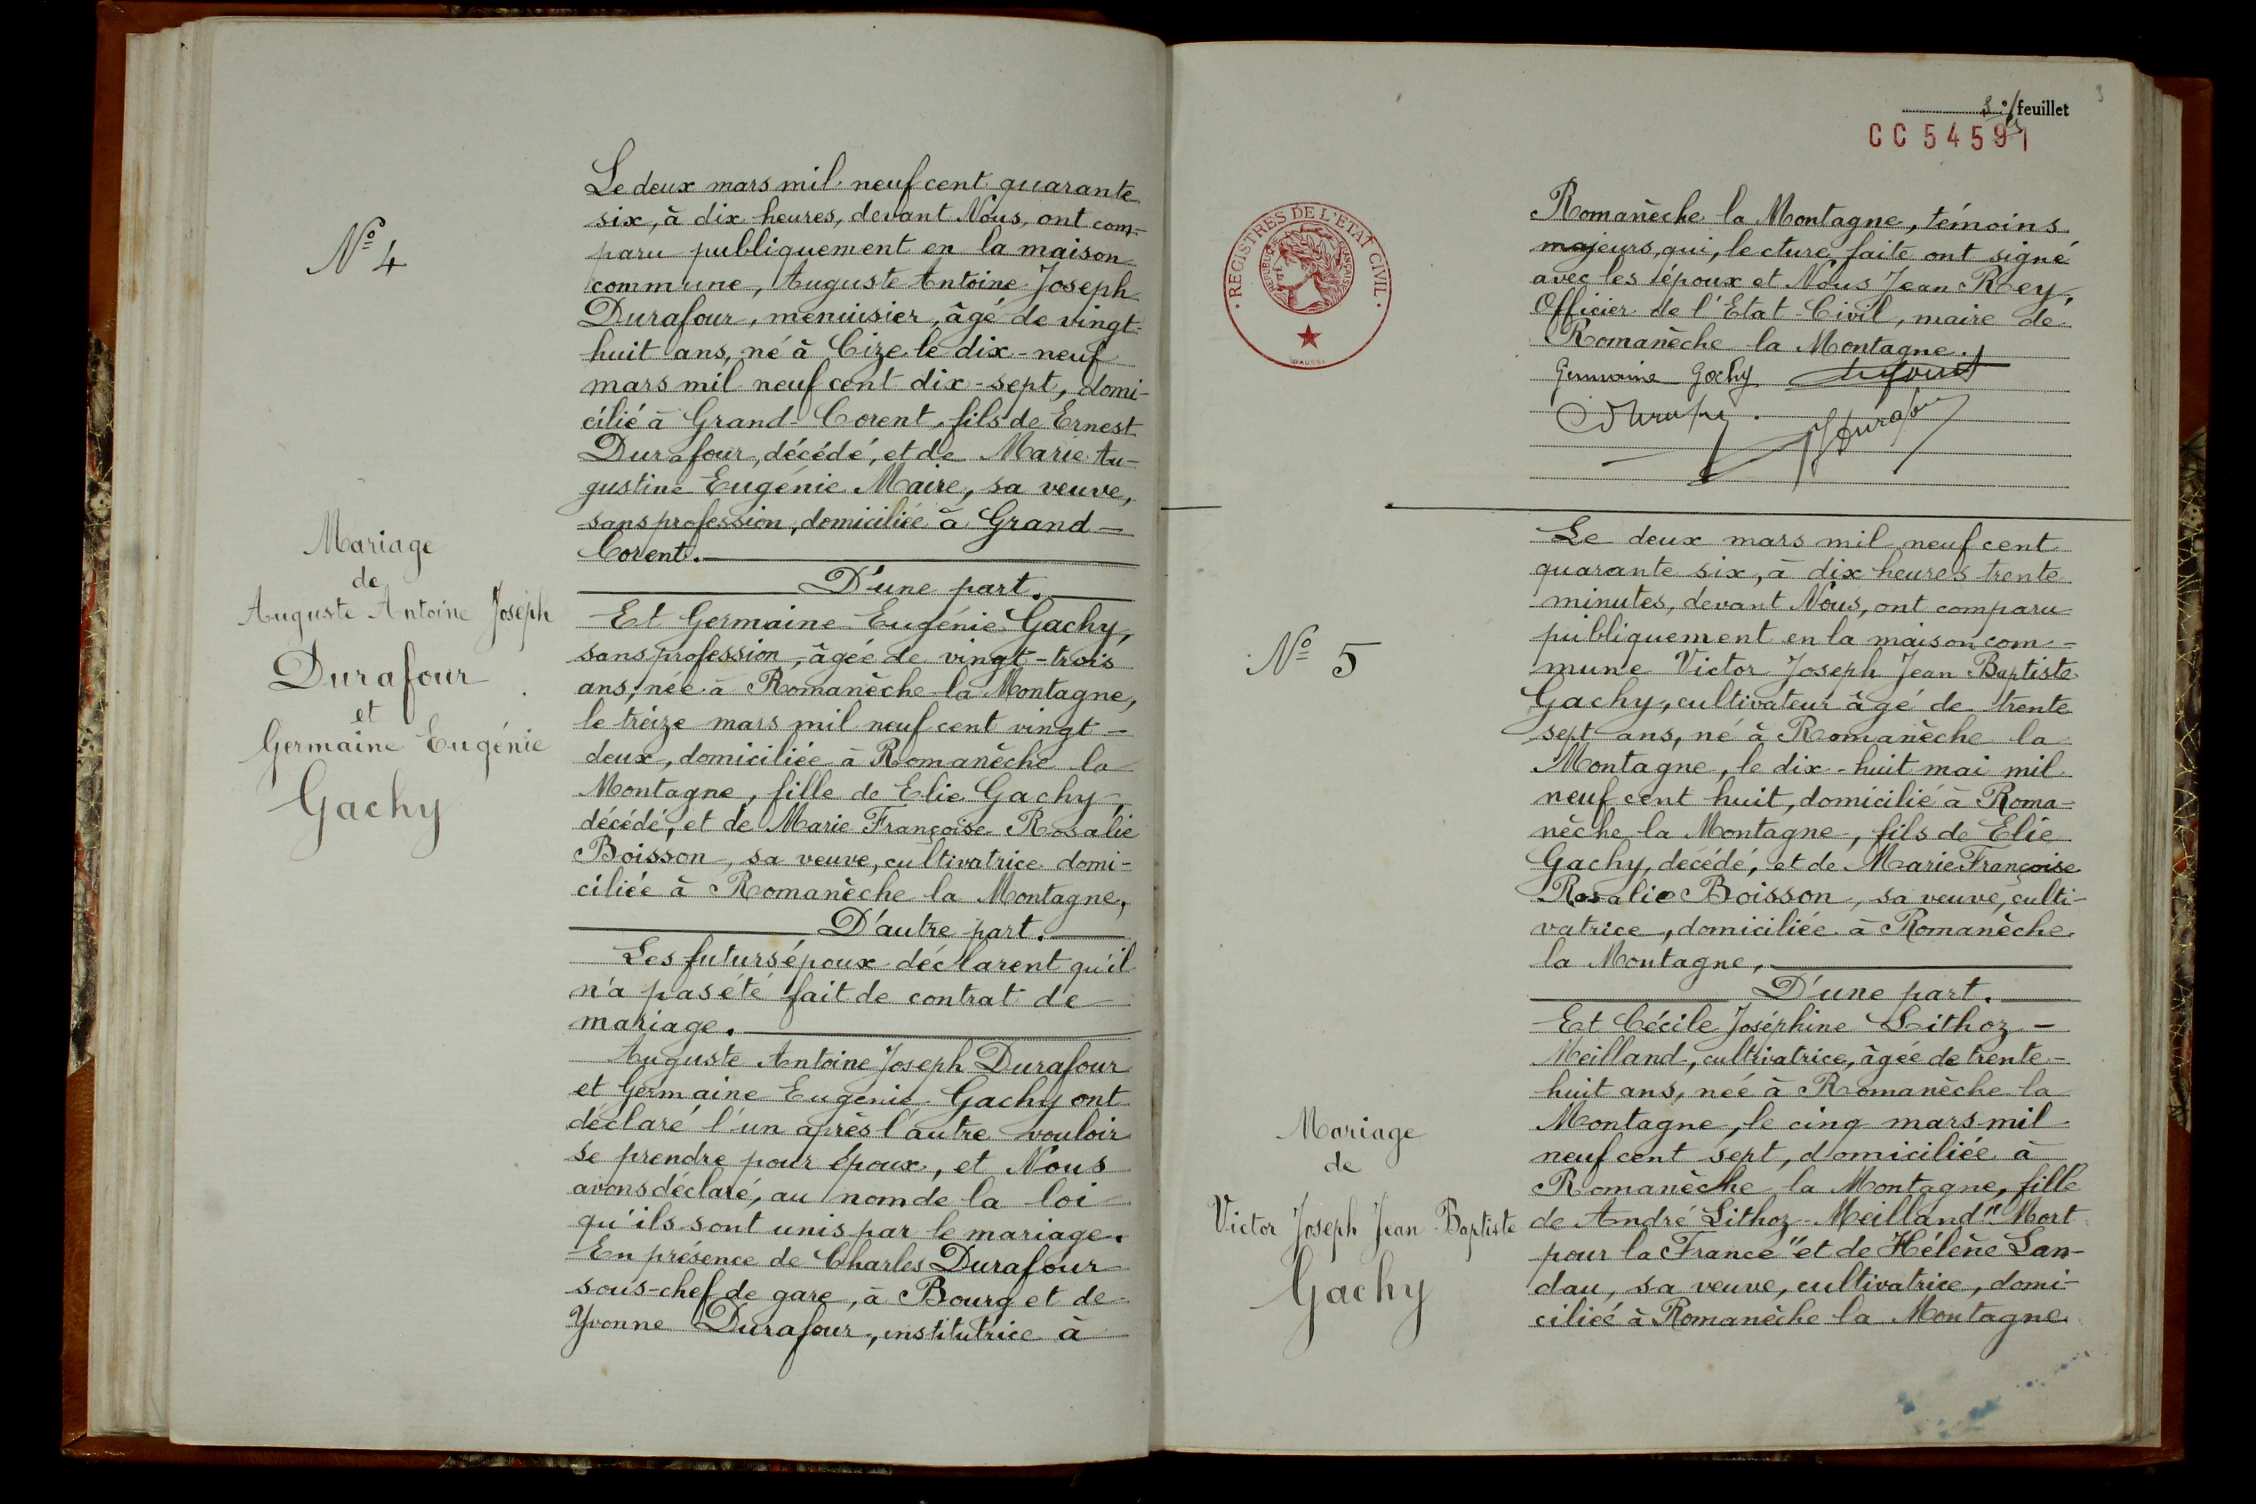 Nº 4
Mariage
de
Auguste Antoine Joseph
Durafour
et
Germaine Eugénie
Gachy
Le deux mars mil neuf cent quarante
six, à dix heures, devant Nous, ont com-
paru publiquement en la maison
commune, Auguste Antoine Joseph
Durafour, menuisier, âgé de vingt-
huit ans, né à Cize le dix-neuf
mars mil neuf cent dix-sept, domi-
cilié à Grand-Corent, fils de Ernest
Durafour, décédé, et de Marie Au-
gustine Eugénie Maire, sa veuve,
sans profession, domiciliée à Grand-
Corent.
D'une part.
Et Germaine Eugénie Gachy,
sans profession, âgée de vingt-trois
ans, née à Romanèche la Montagne,
le treize mars mil neuf cent vingt-
deux, domiciliée à Romanèche la
Montagne, fille de Elie Gachy,
décédé, et de Marie Françoise Rosalie
Boisson, sa veuve, cultivatrice domi-
ciliée à Romanèche la Montagne,
D'autre part.
Les futurs époux déclarent qu'il
n'a pas été fait de contrat de
mariage.
Auguste Antoine Joseph Durafour
et Germaine Eugénie Gachy ont
déclaré l'un après l'autre vouloir
se prendre pour époux, et Nous
avons déclaré, au nom de la loi
qu'ils sont unis par le mariage.
En présence de Charles Durafour
sous-chef de gare, à Bourg et de
Yvonne Durafour, institutrice à
feuillet
CC 54591
REGISTRES DE L'ETAT CIVIL
Romanèche la Montagne, témoins
majeurs, qui, lecture faite ont signé
avec les époux et Nous Jean Rey,
Officier de l'Etat-Civil, maire de
Romanèche la Montagne.
Germaine Gachy
Nº 5
Mariage
de
Victor Joseph Jean Baptiste
Gachy
Le deux mars mil neuf cent
quarante six, à dix heures trente
minutes, devant Nous, ont comparu
publiquement en la maison com-
mune Victor Joseph Jean Baptiste
Gachy, cultivateur âgé de trente
sept ans, né à Romanèche la
Montagne, le dix-huit mai mil
neuf cent huit, domicilié à Roma-
nèche la Montagne, fils de Elie
Gachy, décédé, et de Marie Françoise
Rosalie Boisson, sa veuve, culti-
vatrice, domiciliée à Romanèche
la Montagne,
D'une part.
Et Cécile Joséphine Lithoz-
Meilland, cultivatrice, âgée de trente-
huit ans, née à Romanèche la
Montagne, le cinq mars mil
neuf cent sept, domiciliée à
Romanèche la Montagne, fille
de André Lithoz-Meilland "Mort
pour la France" et de Hélène Lan-
dau, sa veuve, cultivatrice, domi-
ciliée à Romanèche la Montagne